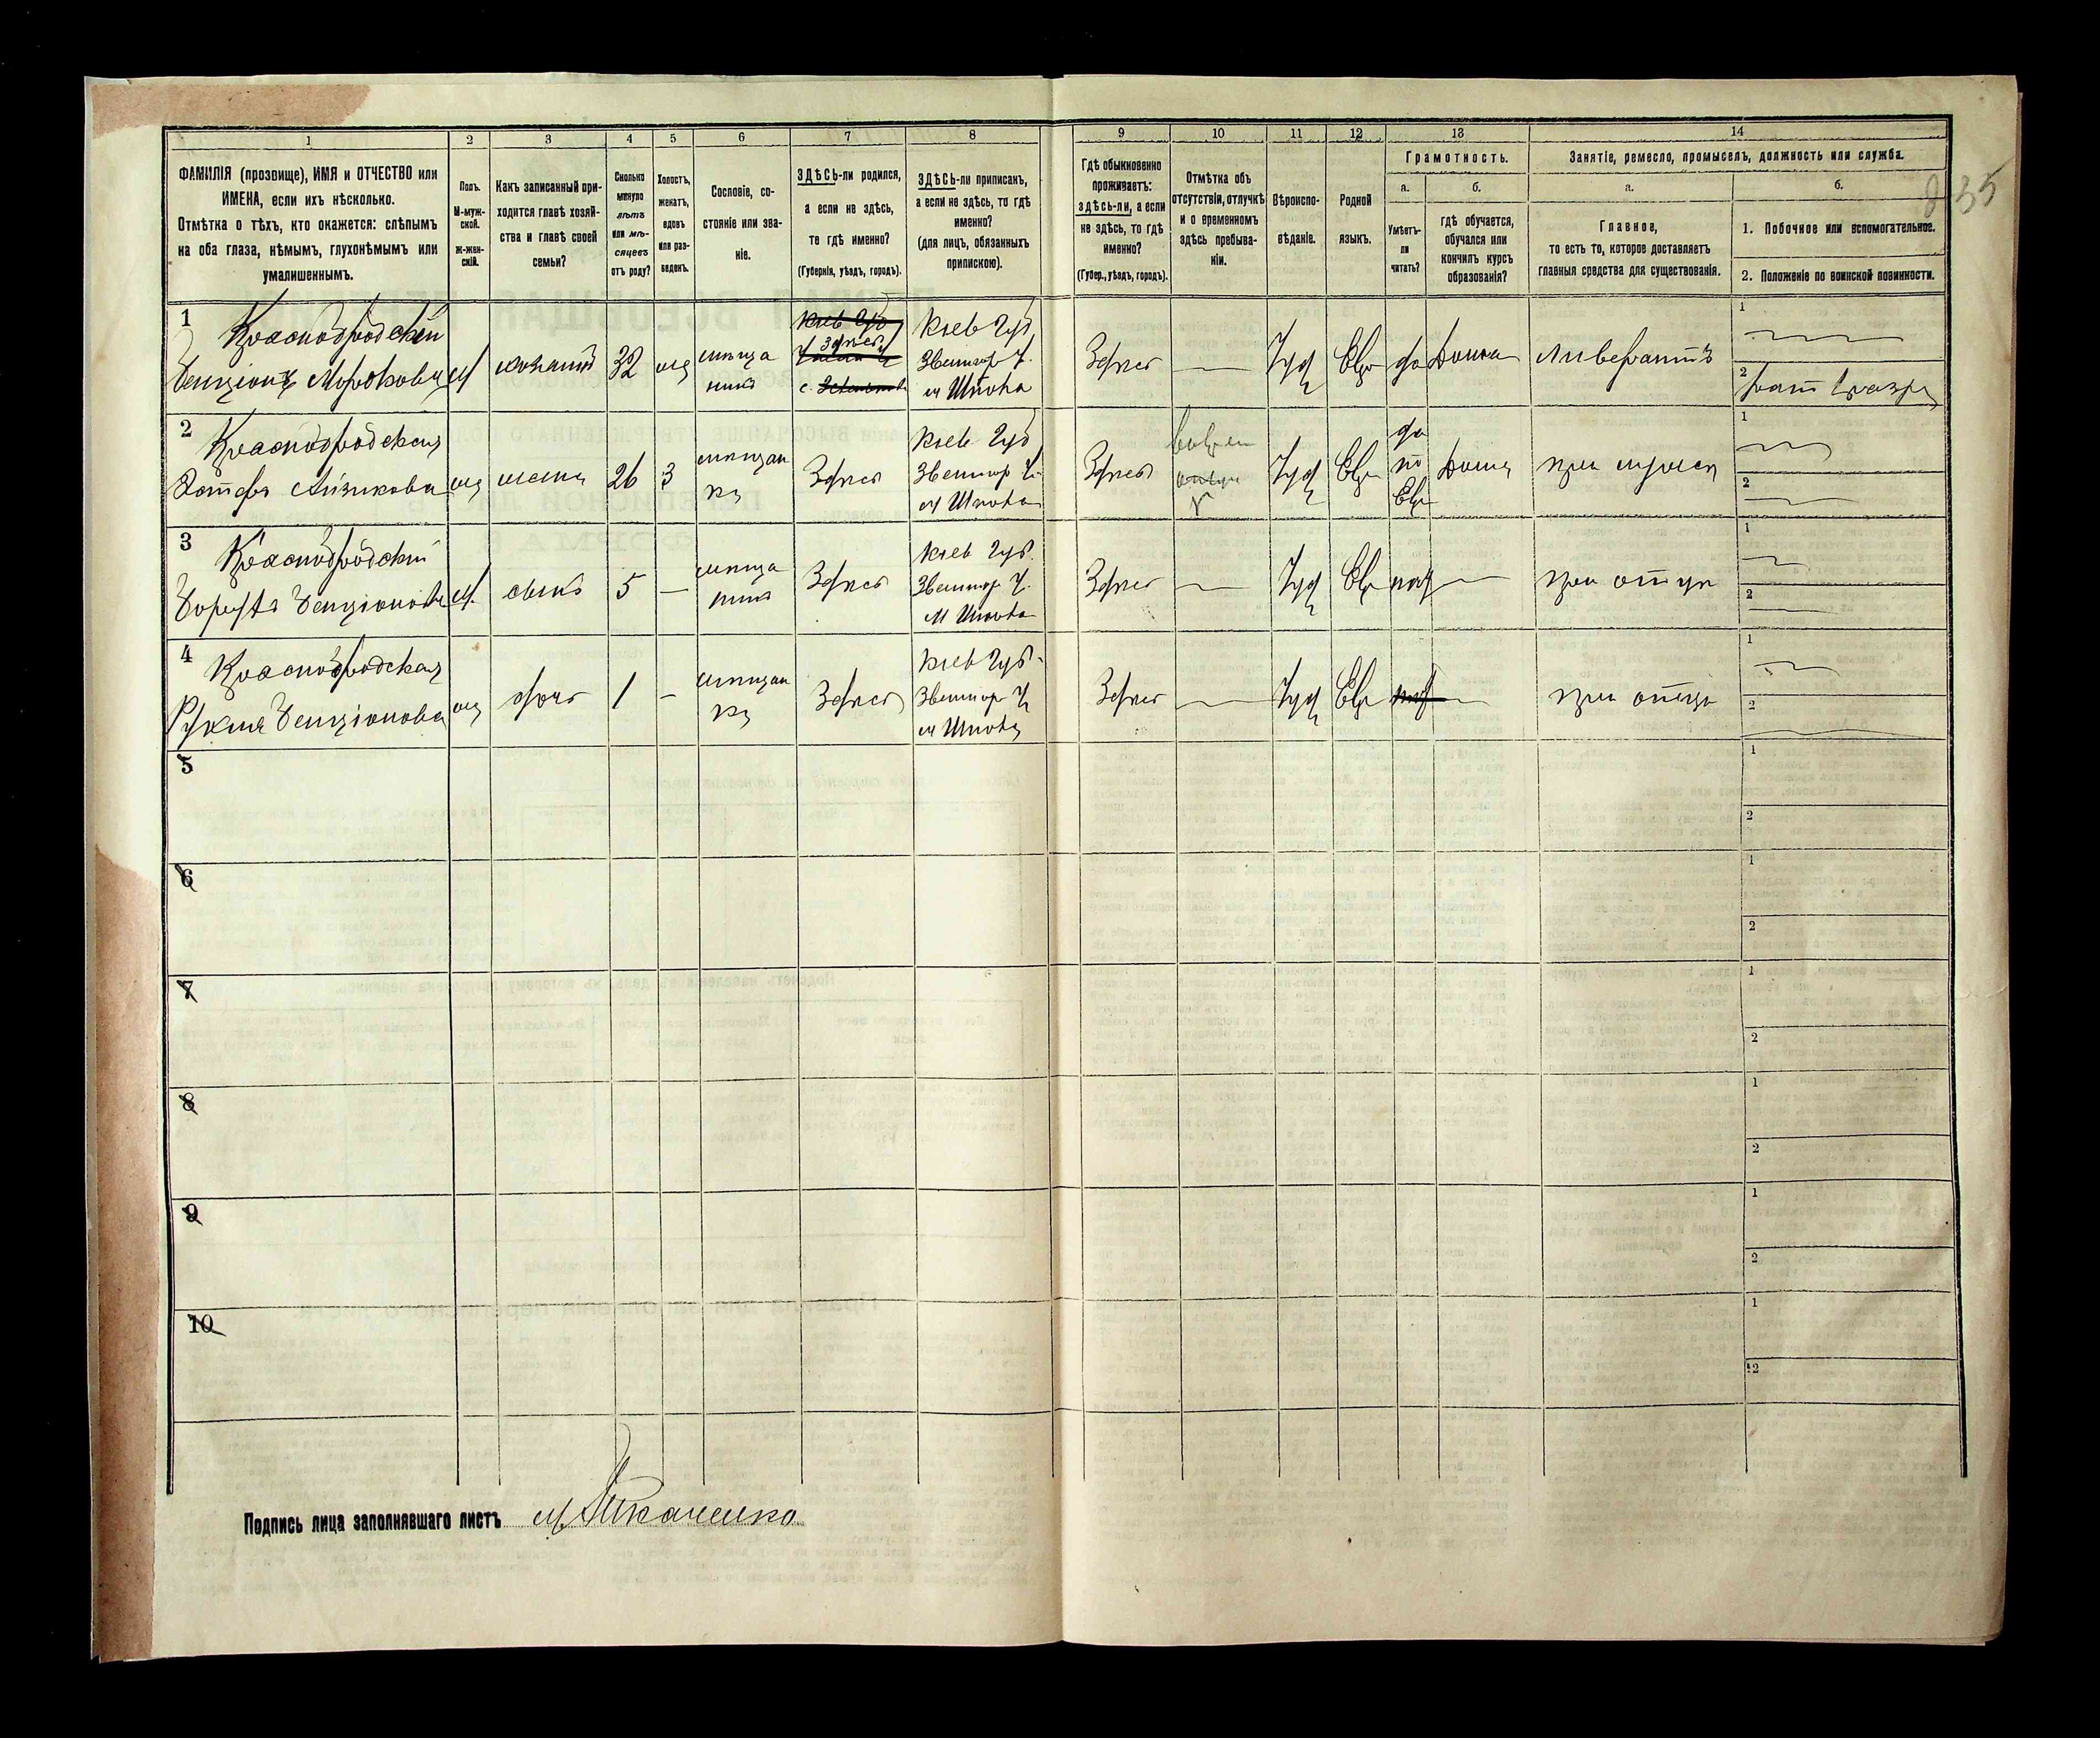 1
2
3
4
5
6
7
8
9
10
11
12
13
14
ФАМИЛІЯ (прозвище), ИМЯ и ОТЧЕСТВО или
ИМЕНА, если ихъ нѣсколько.
Отмѣтка о тѣхъ, кто окажется: слѣпымъ
на оба глаза, нѣмымъ, глухонѣмымъ или
умалишеннымъ.
Полъ.
М-муж-
ской.
Ж-жен-
скій.
Какъ записанный при-
ходится главѣ хозяй-
ства и главѣ своей
семьи?
Сколько
минуло
лѣтъ
или мѣ-
сяцевъ
отъ роду?
Холостъ,
женатъ,
вдовъ
или раз-
веденъ.
Сословіе, со-
стояніе или зва-
ніе.
ЗДѢСЬ-ли родился,
а если не здѣсь,
то гдѣ именно?
(Губернія, уѣздъ, городъ).
ЗДѢСЬ-ли приписанъ,
а если не здѣсь, то гдѣ
именно?
(для лицъ, обязанныхъ
припискою).
Гдѣ обыкновенно
проживаетъ:
здѣсь-ли, а если
не здѣсь, то гдѣ
именно?
(Губер., уѣздъ, городъ).
Отмѣтка объ
отсутствіи, отлучкѣ
и о временномъ
здѣсь пребыва-
ніи.
Вѣроиспо-
вѣданіе.
Родной
языкъ.
Грамотность.
а.
Умѣетъ-
ли
читать?
б.
гдѣ обучается,
обучался или
кончилъ курсъ
образованія?
Занятіе, ремесло, промыселъ, должность или служба.
а.
Главное,
то есть то, которое доставляетъ
главныя средства для существованія.
б.
1. Побочное или вспомогательное.
2. Положеніе по воинской повинности.
35
1
Краснобродскій
Бенціонъ
М
32
Кіев Губ
Здѣсь
Кіев Губ,
Звениг У.
м Шпола
Здѣсь
Іуд
Евр
да
Дома
1
2
2
Краснобродская
26
З
мѣщан
ка
Здѣсь
Кіев Губ
Звениг У.
м Шпола
Здѣсь
Іуд
Евр
да
по
Евр
Дома
при мужѣ
1
2
3
Краснобродскій
М.
сынъ
5
—
Здѣсь
Кіев Губ.
Звениг У.
м Шпола
Здѣсь
—
Іуд
Евр
—
при отцѣ
1
2
4
Краснобродская
Бенціонова
дочь
1
-
мѣщан
ка
Здѣсь
Кіев Губ.
Звениг У
м Шпола
Здѣсь
—
Іуд
Евр
—
при отцѣ
1
2
5
1
2
6
1
2
7
1
2
8
1
2
9
1
2
10
1
2
Подпись лица заполнявшаго листъ М Ткаченко